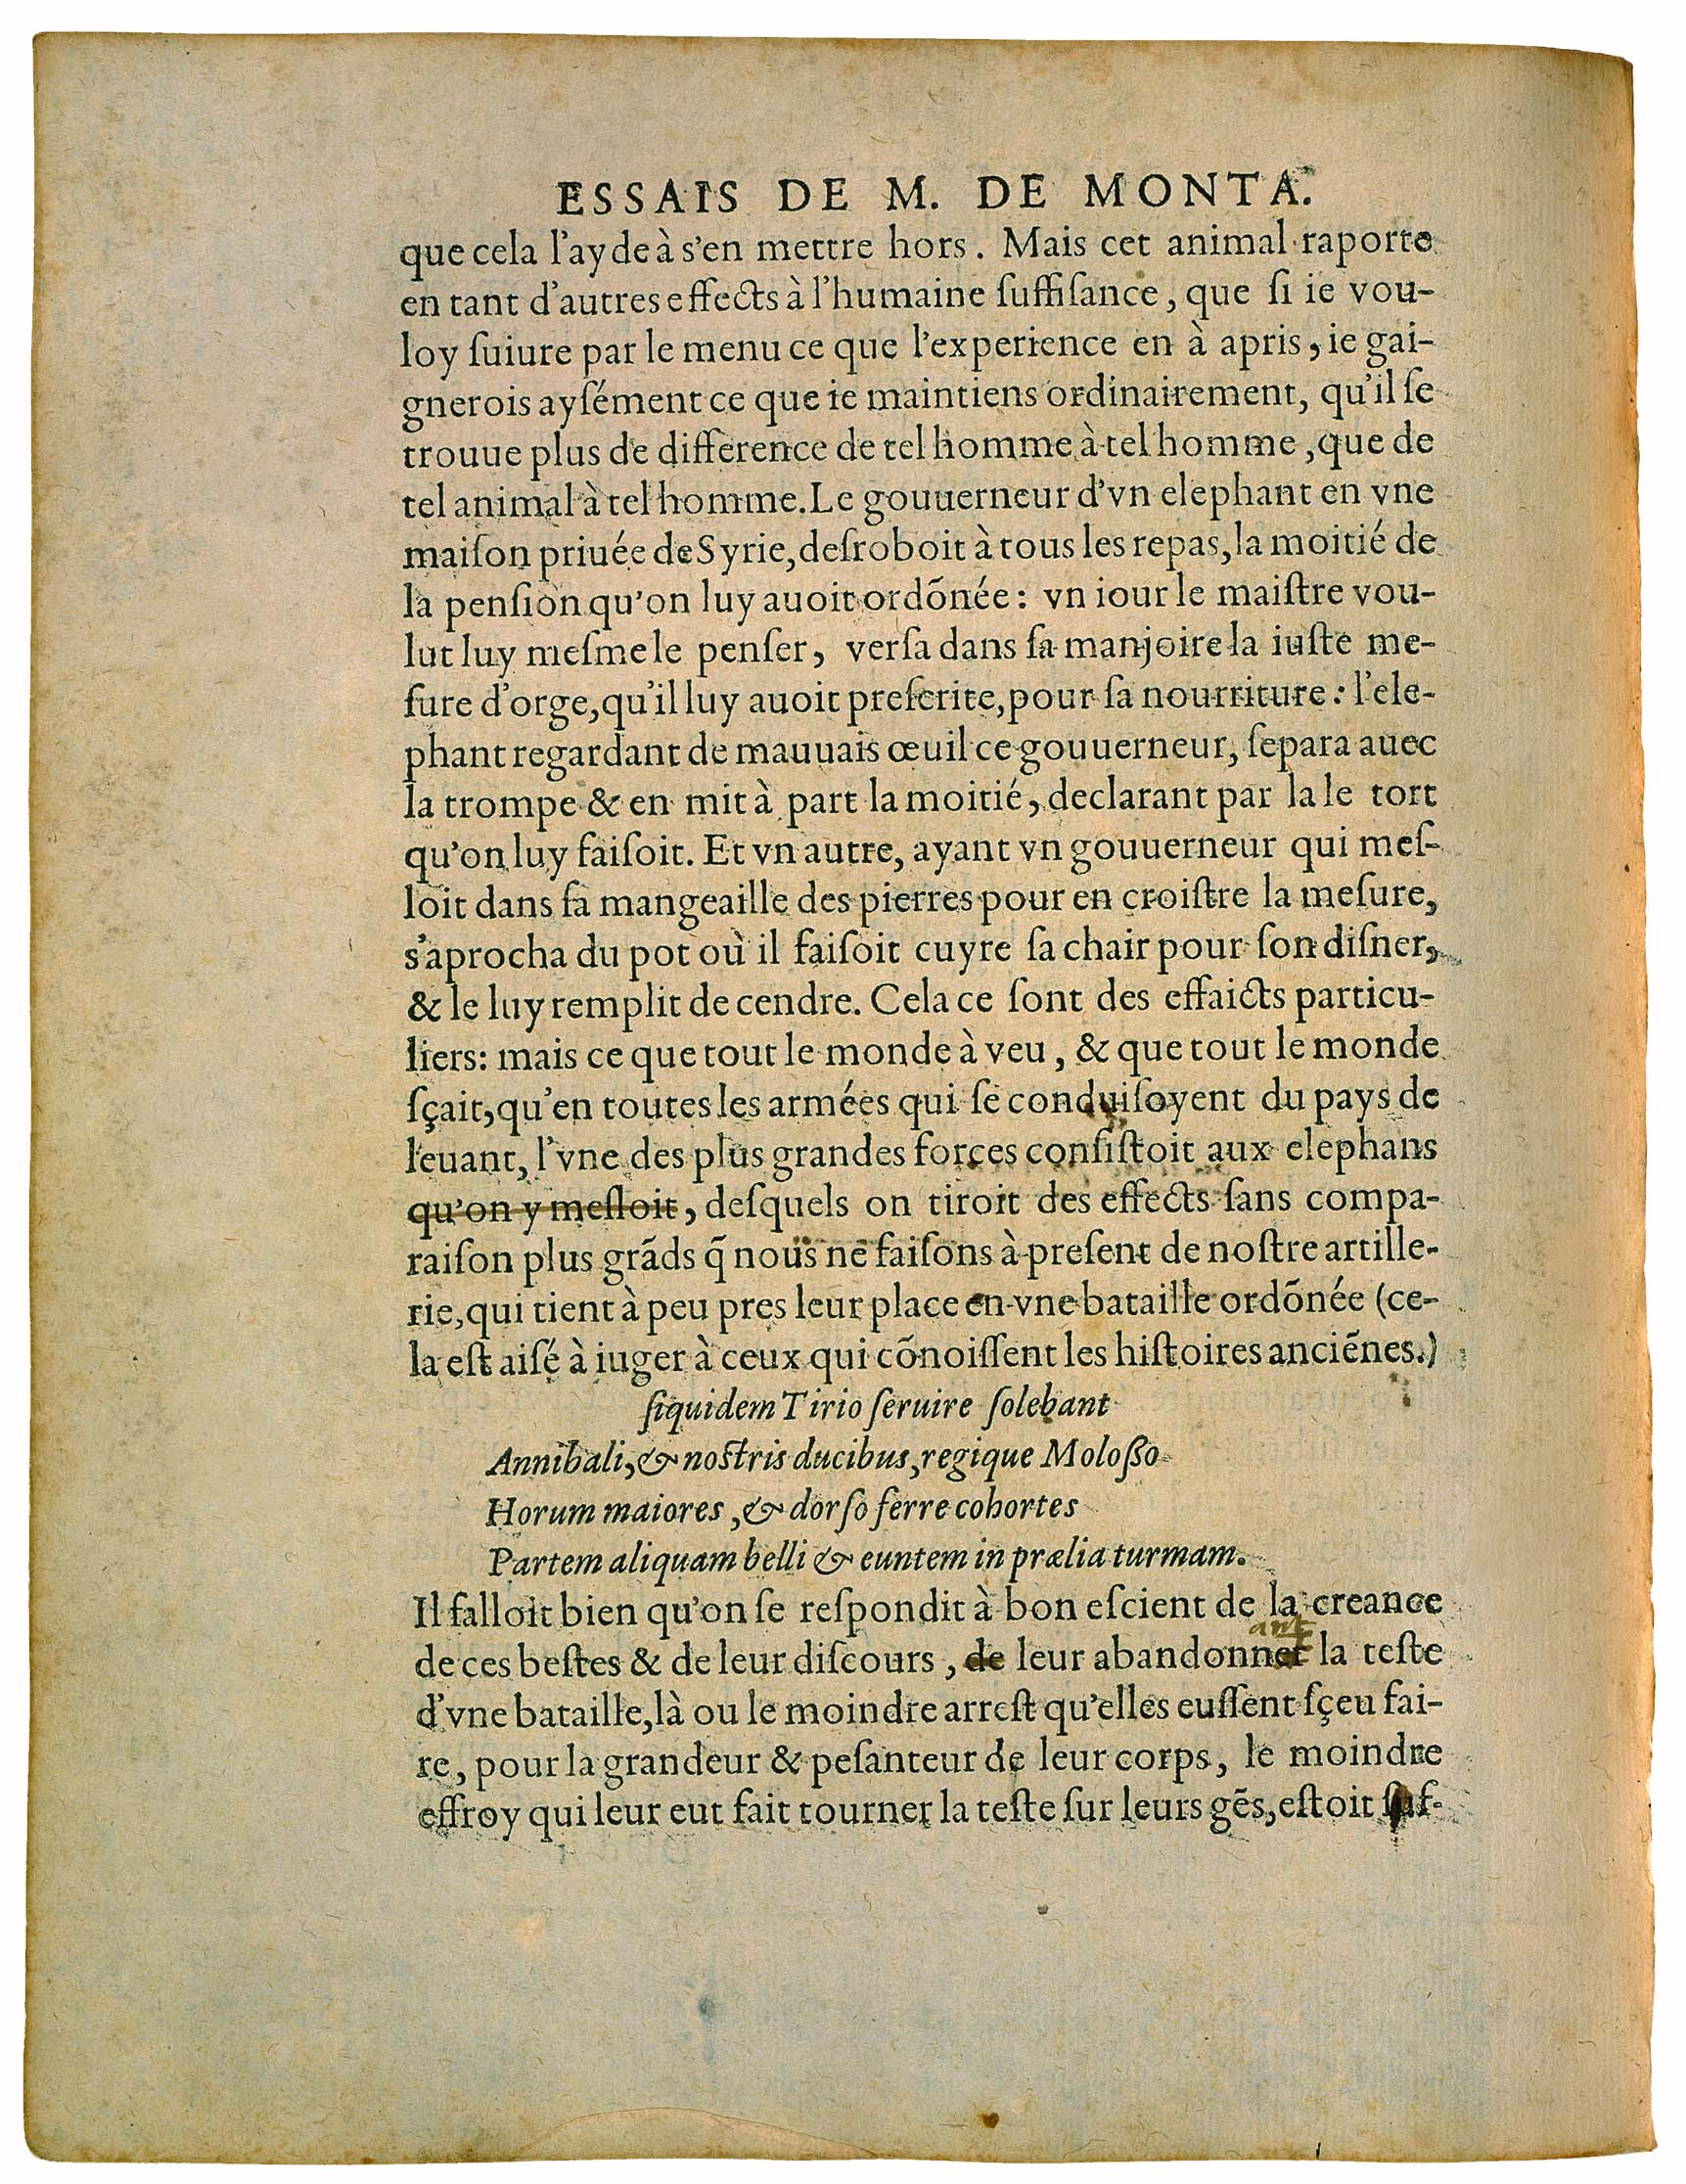 ESSAIS DE M. DE MONTA.
que cela l'ayde à s'en mettre hors. Mais cet animal raporte
en tant d'autres effects à l'humaine ſuffiſance, que ſi ie vou-
loy ſuiure par le menu ce que l'experience en à apris, ie gai-
gnerois ayſément ce que ie maintiens ordinairement, qu'il ſe
trouue plus de difference de tel homme à tel homme, que de
tel animal à tel homme. Le gouuerneur d'vn elephant en vne
maiſon priuée de Syrie, deſroboit à tous les repas, la moitié de
la penſion qu'on luy auoit ordõnée: vn iour le maiſtre vou-
lut luy meſme le penſer, verſa dans ſa manjoire la iuſte me-
ſure d'orge, qu'il luy auoit preſcrite, pour ſa nourriture: l'ele-
phant regardant de mauuais œuil ce gouuerneur, ſepara auec
la trompe & en mit à part la moitié, declarant par la le tort
qu'on luy faiſoit. Et vn autre, ayant vn gouuerneur qui meſ-
loit dans ſa mangeaille des pierres pour en croiſtre la meſure,
s'aprocha du pot où il faiſoit cuyre ſa chair pour ſon diſner,
& le luy remplit de cendre. Cela ce ſont des effaicts particu-
liers: mais ce que tout le monde à veu, & que tout le monde
ſçait, qu'en toutes les armées qui ſe conduiſoyent du pays de
leuant, l'vne des plus grandes forces conſiſtoit aux elephans
qu'on y meſloit, deſquels on tiroit des effects ſans compa-
raiſon plus grãds q̃ nous ne faiſons à preſent de noſtre artille-
rie, qui tient à peu pres leur place en vne bataille ordõnée (ce-
la eſt aiſé à iuger à ceux qui cõnoiſſent les hiſtoires anciẽnes.)
ſiquidem Tirio ſeruire ſolebant
Annibali, & noſtris ducibus, regique Moloßo
Horum maiores, & dorſo ferre cohortes
Partem aliquam belli & euntem in prælia turmam.
Il falloit bien qu'on ſe reſpondit à bon eſcient de la creance
ant
de ces beſtes & de leur diſcours, de leur abandonner la teſte
d'vne bataille, là ou le moindre arreſt qu'elles euſſent ſçeu fai-
re, pour la grandeur & peſanteur de leur corps, le moindre
effroy qui leur eut fait tourner la teſte ſur leurs gẽs, eſtoit ſuf-